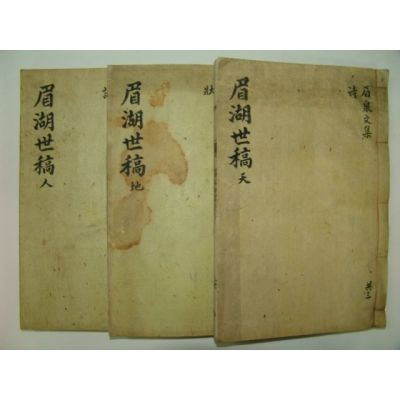 眉湖世稿 天
眉泉文集
詩
共三
眉湖世稿 地
狀
眉湖世稿 人